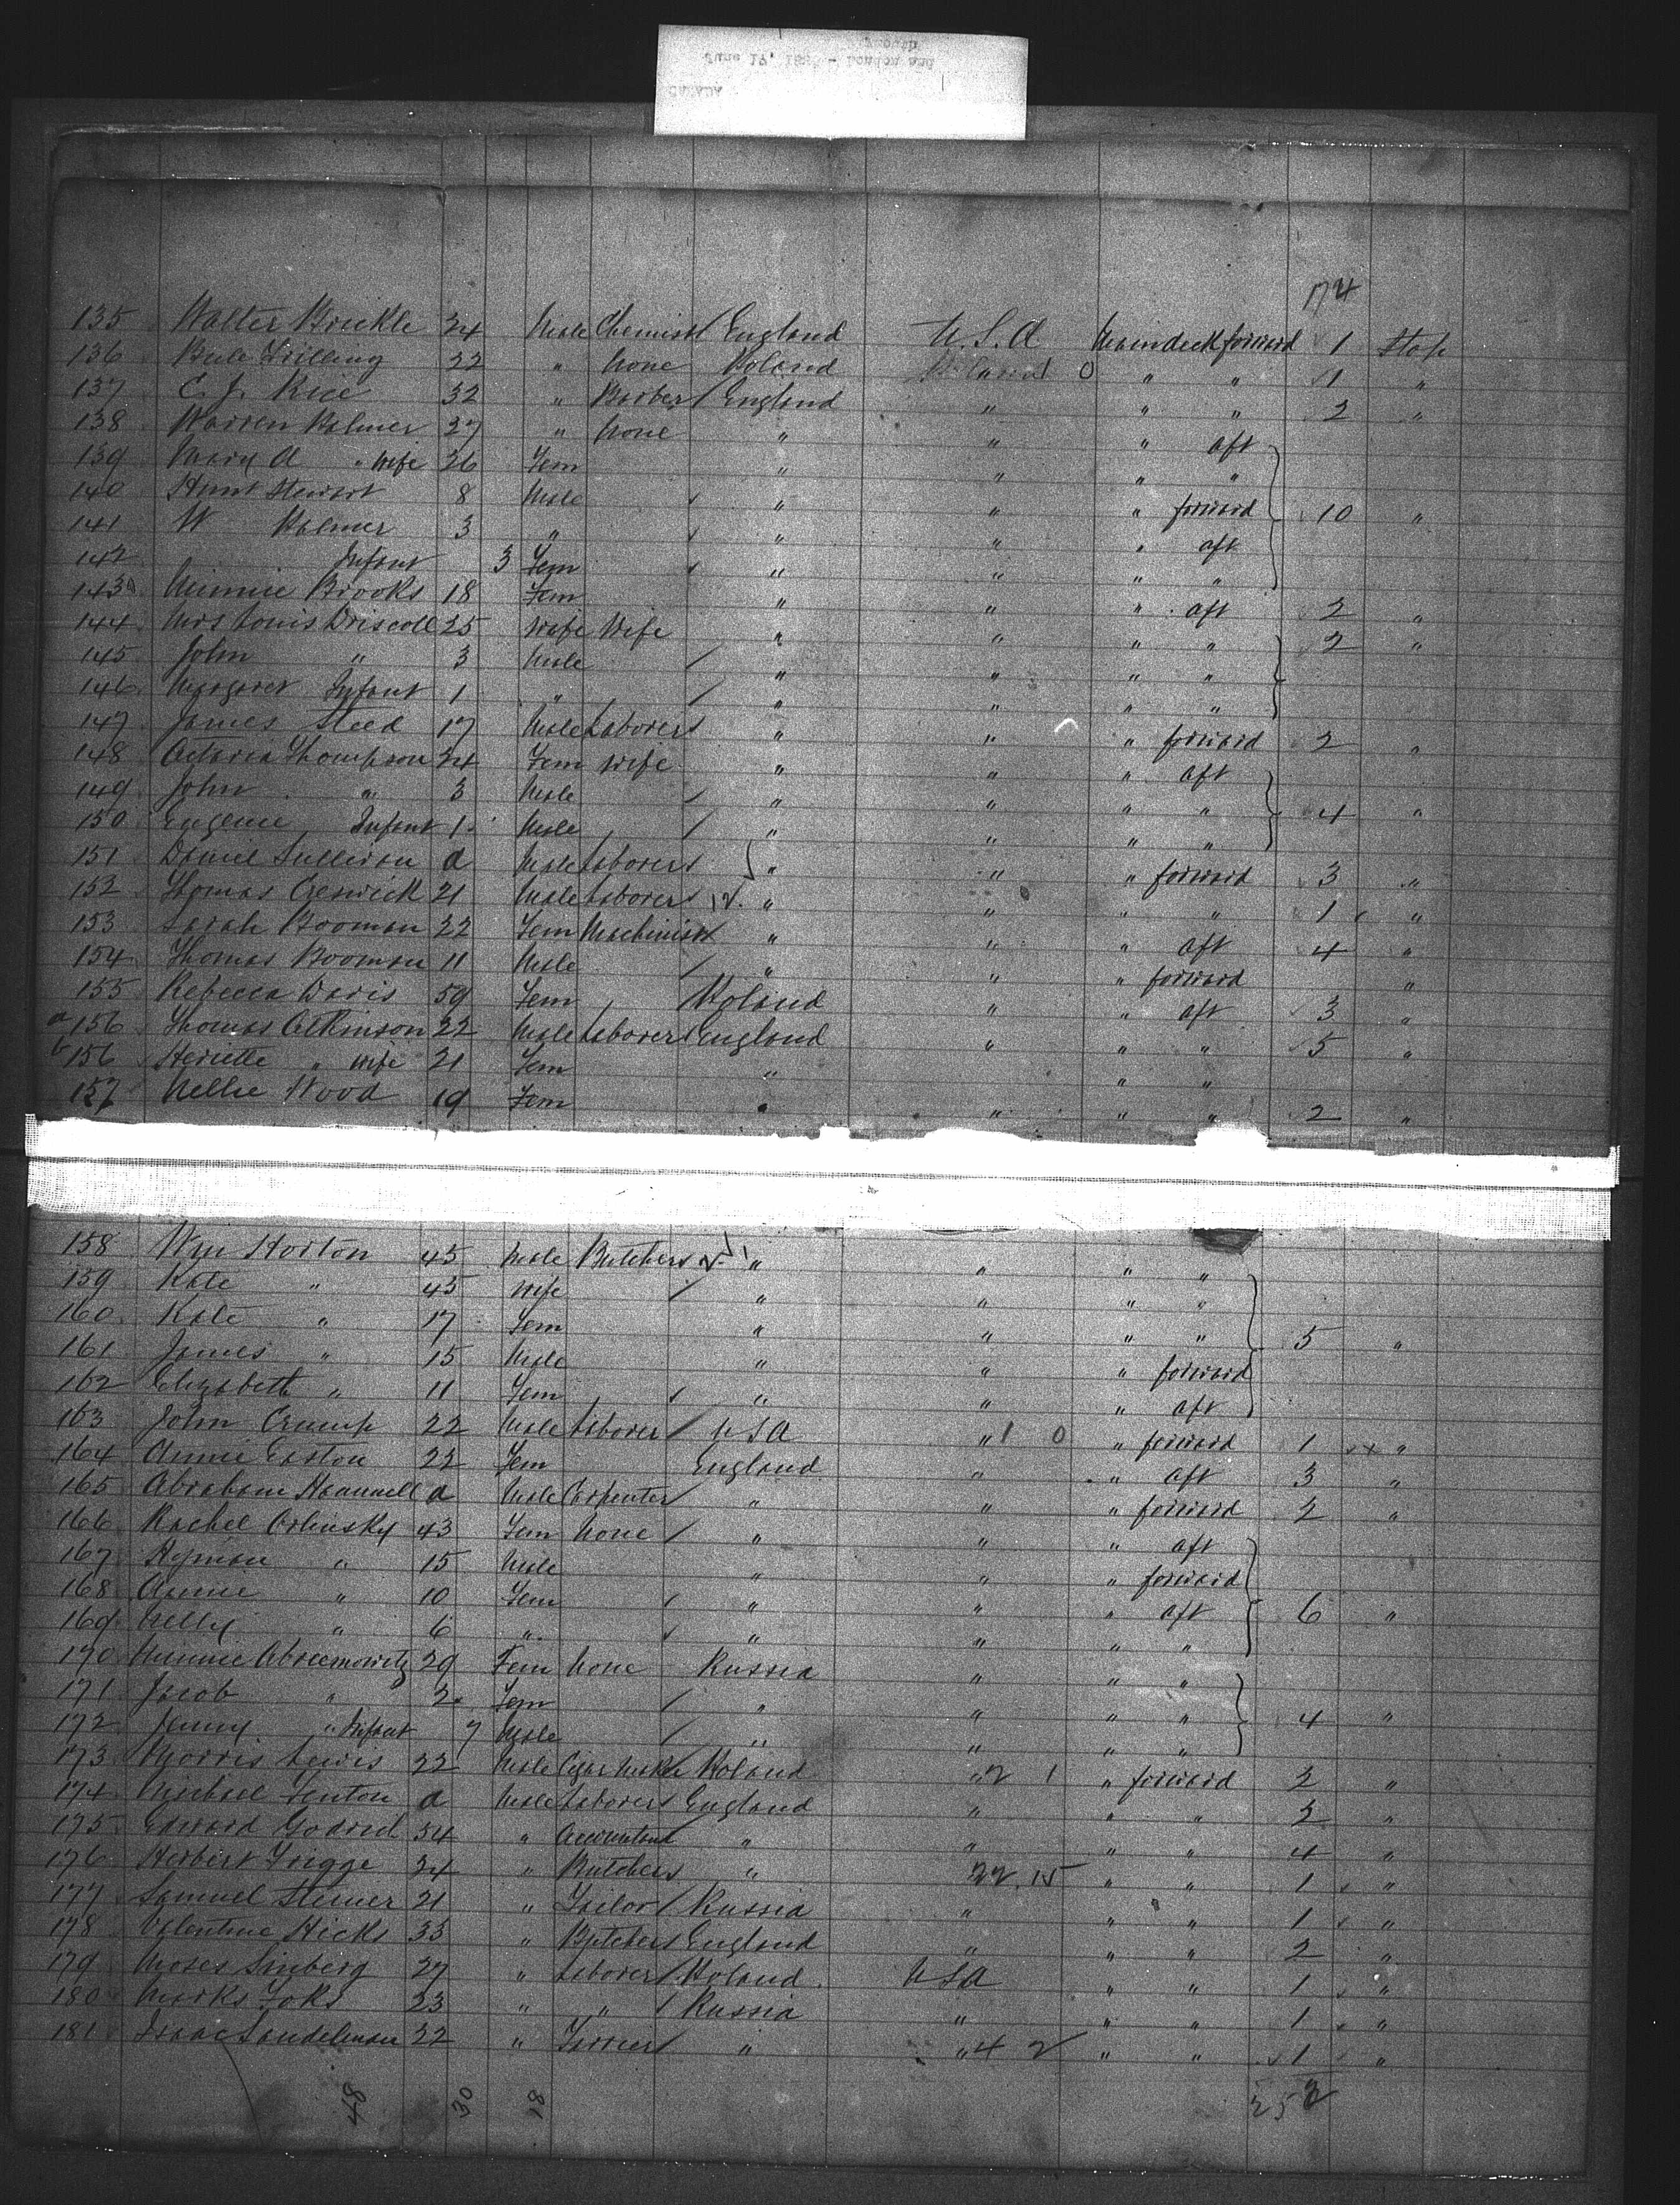 174
135 Walter Brickle 34 Male Chemist England U.S.A Maindeck forward 1 Stop
136 22 " None Poland Poland 0 " " 1 "
137 C. J. Rice 32 " Barber England " " " 2 "
138 Warren Palmer 27 " None " " " aft
139 Mary A " Wife 26 Fem " " " "
140 Hunt Stewart 8 Male " " " forward 10 "
141 W Palmer 3 " " " " aft
142 Infant 3 Fem " " " "
143 Minnie Brooks 18 Fem " " " aft 2 "
144 Mrs Louis Driscoll 25 Wife Wife " " " " 2 "
145 John " 3 Male " " " "
146 Margaret Infant 1 " " " " "
147 James Steed 17 Male Laborer " " " forward 2 "
148 Thompson 24 Fem Wife " " " aft
149 John " 3 Male " " " " 4 "
150 Eugenie Infant 1 Male " " " "
151 Daniel Sullivan a Male Laborer " " " forward 3 "
152 Thomas Creswick 21 Male Laborer 12. " " " " 1 "
153 Sarah Booman 22 Fem Machinist " " " aft 4 "
154 Thomas Booman 11 Male " " " forward "
155 Rebecca Davis 59 Fem Poland " " aft 3 "
a 156 Thomas Atkinson 22 Male Laborer England " " " 5 "
b 156 Heriette " Wife 21 Fem " " "
157 Nellie Wood 19 Fem " " " " 2 "
158 Wm Horton 45 Male Butcher " " " "
159 Kate " 45 Wife " " " "
160 Kate " 17 Fem " " " " 5 "
161 James " 15 Male " " " forward
162 Elizabeth " 11 Fem " " " aft
163 John Crump 22 Male Laborer USA " 1 0 " forward 1 "
164 Annie Easton 22 Fem England " " aft 3 "
165 Abraham Hammell a Male Carpenter " " " forward 2 "
166 Rachel Orlinsky 43 Fem None " " " aft
167 Hyman " 15 Male " " " forward
168 Annie " 10 Fem " " " aft 6 "
169 Nelly " 6 " " " " "
170 Minnie Abraemowitz 29 Fem None Russia " " "
171 Jacob " 2 Fem " " " " 4 "
172 Jenny " Infant 7 Male " " " "
173 Morris Lewis 22 Male Cigar Maker Poland " 2 1 " forward 2 "
174 Michael Fenton a Male Laborer England " " " 2 "
175 Edward 34 " Accountant " " " " 4 "
176 Herbert Frigge 24 " Butcher " 22 15 " " 1 "
177 Samuel Steiner 21 " Tailor Russia " " " 1 "
178 Valentine Hicks 33 " Butcher England " " " 2 "
179 Moses Sinberg 27 " Laborer Poland USA " " 1 "
180 Marks Foks 23 " " Russia " " " 1 "
181 Isaac Sandelman 22 " " " 4 2 " " 1 "
48 30 18 252